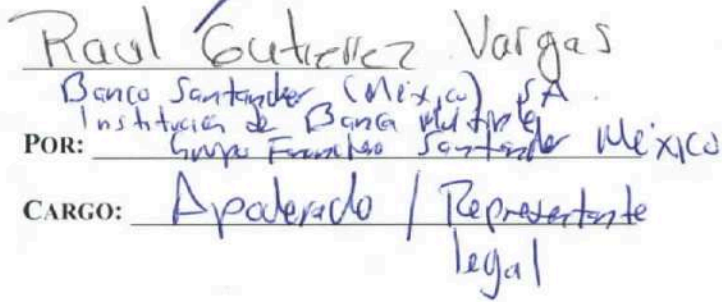 Raul Gutierrez Vargas
Banco Santander (México) SA.
Institución de Banca Multiple
POR: Grupo Financiero Santander México
CARGO: Apoderado / Representante
legal